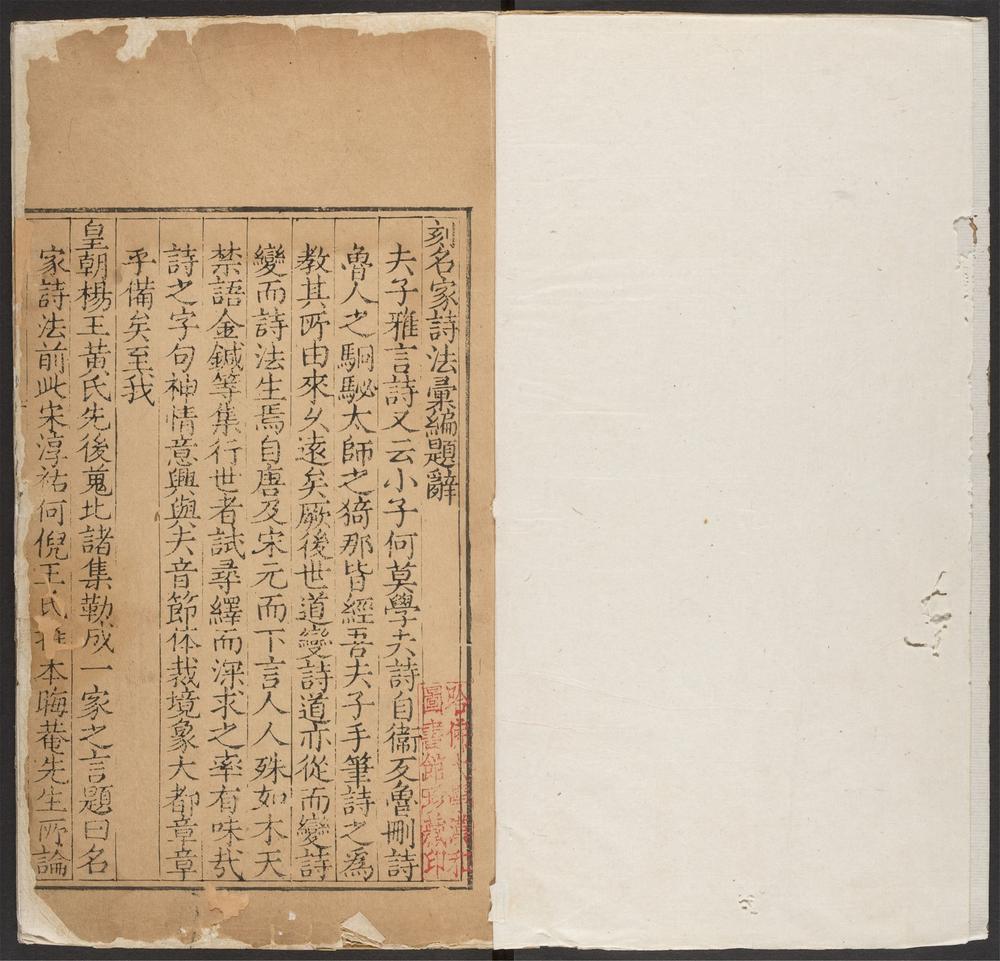 刻名家詩法彙編題辭
夫子雅言詩又云小子何莫學夫詩自衞反魯刪詩
魯人之駉駜太師之猗那皆經吾夫子手筆詩之爲
教其所由來久遠矣厥後世道變詩道亦從而變詩
變而詩法生焉自唐及宋元而下言人人殊如木天
禁語金鍼等集行世者試尋繹而深求之率有味哉
詩之字句神情意興與夫音節体裁境象大都章章
乎備矣至我
皇朝楊王黃氏先後蒐此諸集勒成一家之言題曰名
家詩法前此宋淳祐何倪王氏 本晦菴先生所論
哈佛大學漢和
圖書館珍藏印